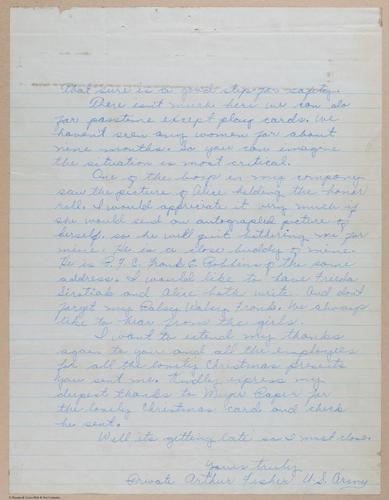 that sure is a good step for safety.
There isn't much here we can do
for passtime except play cards. We
haven't seen any women for about
nine months. So you can imagine
the situation is most critical.
One of the boys in my company
saw the picture of Alice holding the honor
roll. I would appreciate it very much if
she would send an autographed picture of
herself, so he will quit bothering me for
mine. He is a close buddy of mine.
He is P.F.C. Frank E. Robbins of the same
address. I would like to have Freeda
and Alice both write. And don't
forget my Frank. We always
like to hear from the girls.
I want to extend my thanks
again to you and all the employees
for all the lovely Christmas presents
you sent me. Kindly express my
deepest thanks to Meyer for
the lovely Christmas card and check
he sent.
Well its getting late so I must close.
Yours truly,
Private Arthur Fisher U.S. Army